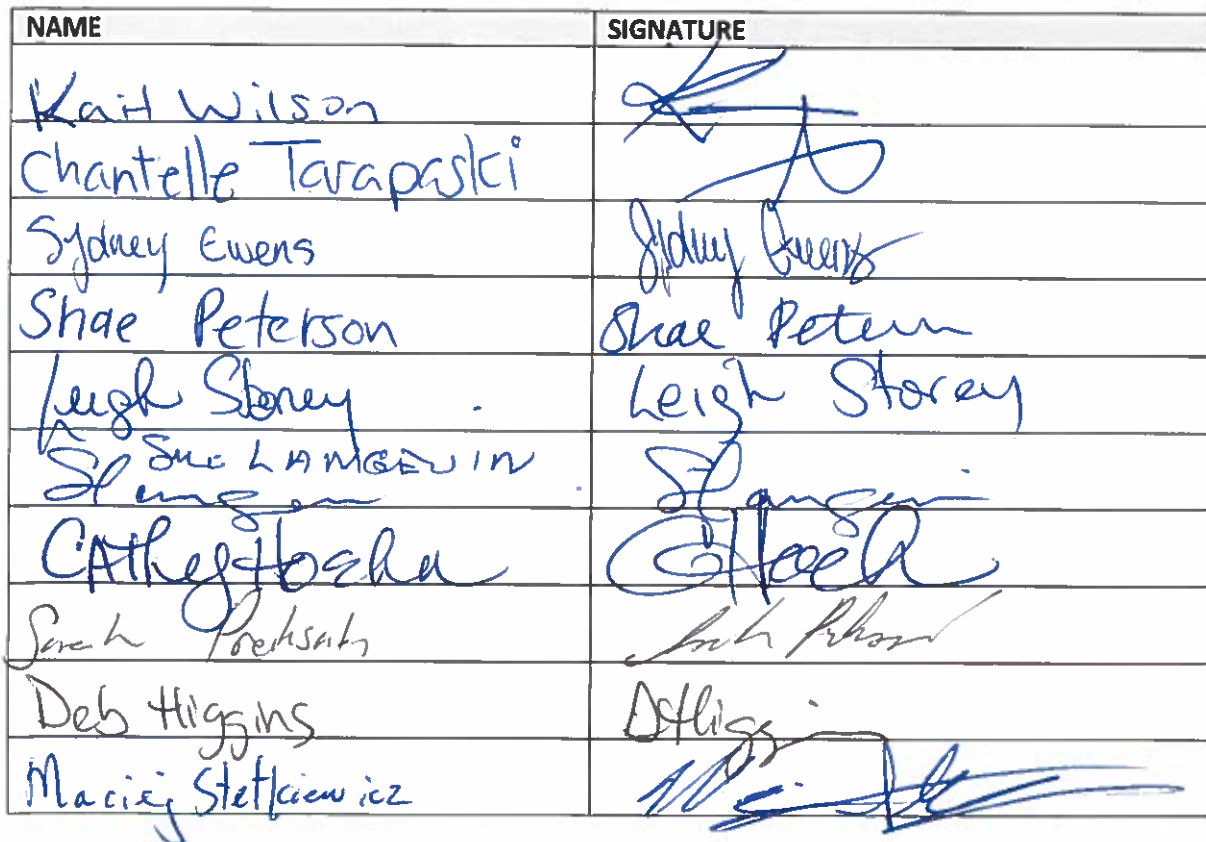 NAME SIGNATURE
Kait Wilson
Chantelle Tarapaski
Sydney Ewens Sydney Ewens
Shae Peterson Shae Peterson
Leigh Storey Leigh Storey
Sue LANGEVIN
SLangevin SLangevin
CAthy Hoehn CHoehn
Sarah
Deb Higgins DHiggins
Maciej Stetkiewicz